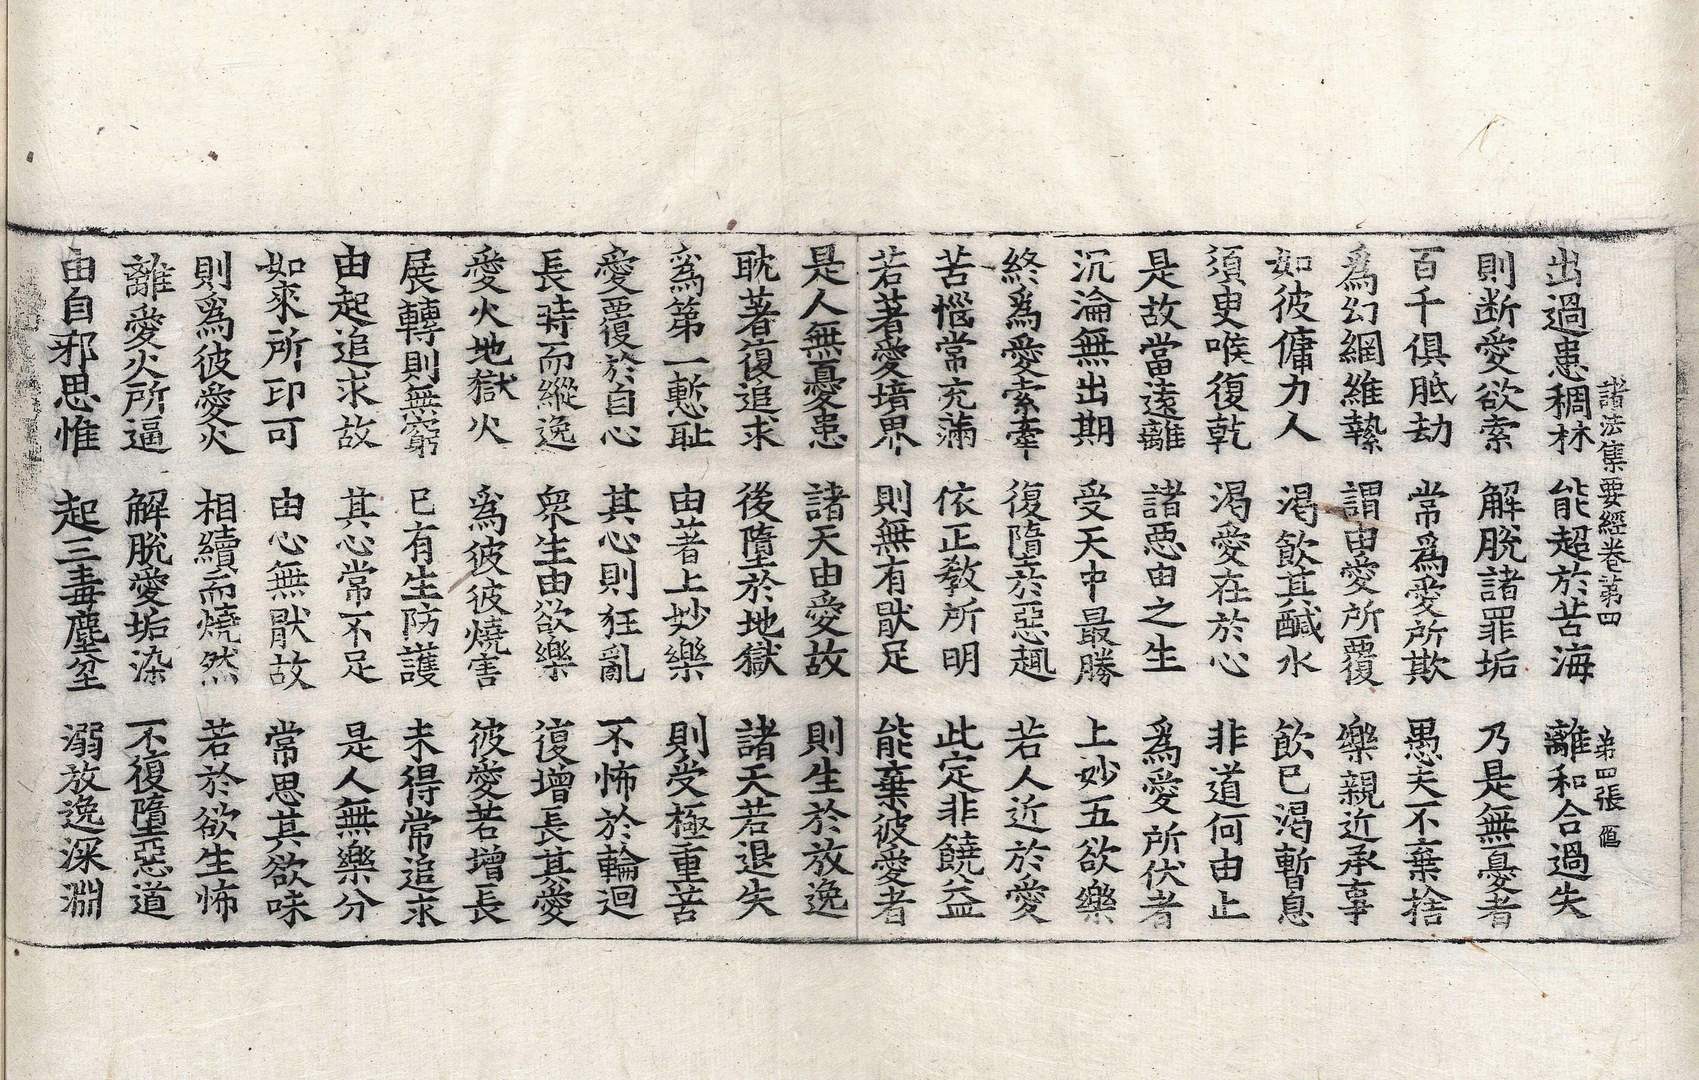 諸法集要經卷第四 第四張 傴
出過患稠林 能超於苦海 離和合過失
則断愛欲索 解脫諸罪垢 乃是無憂者
百千俱胝劫 常爲愛所欺 愚夫不棄捨
爲幻網維縶 謂由愛所覆 樂親近承事
如彼傭力人 渴飮其鹹水 飮已渴暫息
須臾喉復乾 渴愛在於心 非道何由止
是故當遠離 諸惡由之生 爲愛所伏者
沉淪無出期 受天中最勝 上妙五欲樂
終爲愛索牽 復墮於惡趣 若人近於愛
苦惱常充滿 依正教所明 此定非饒益
若著愛境界 則無有猒足 能棄彼愛者
是人無憂患 諸天由愛故 則生於放逸
耽著復追求 後墮於地獄 諸天若退失
爲第一慙耻 由著上妙樂 則受極重苦
愛覆於自心 其心則狂亂 不怖於輪迴
長時而縱逸 衆生由欲樂 復增長其愛
愛火地獄火 爲彼彼燒害 彼愛若增長
展轉則無窮 已有生防護 未得常追求
由起追求故 其心常不足 是人無樂分
如來所印可 由心無猒故 常思其欲味
則爲彼愛火 相續而燒然 若於欲生怖
離愛火所逼 解脫愛垢染 不復墮惡道
由自邪思惟 起三毒塵坌 溺放逸深淵